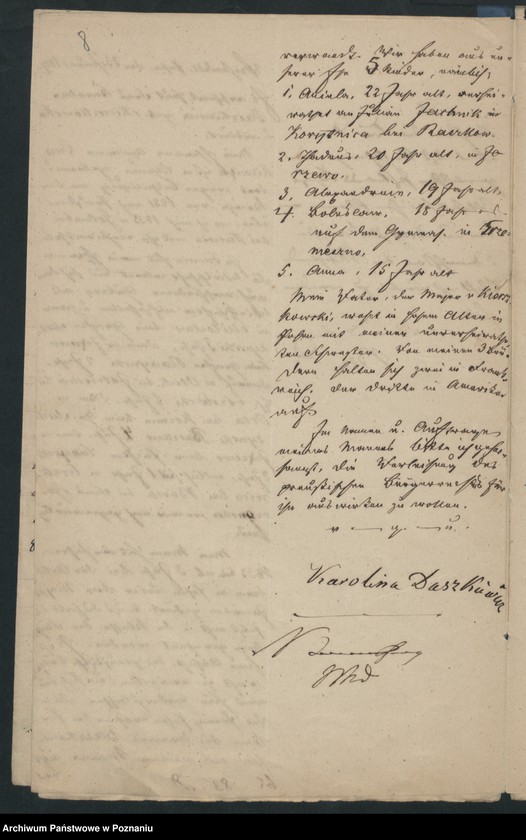 8
verwandt. Wir haben aus un-
serer Ehe 5 Kinder, nämlich:
1. Aniela, 22 Jahr alt, verhei-
rathet an Julian Jachnik in
Korytnica bei Raszkow.
2. Thadeus, 20 Jahr alt, in Ja-
rzewo.
3. Alexandrine, 19 Jahr alt,
4. Boleslaw, 18 Jahr
auf dem Gymnas. in Trze-
meszno,
5. Anna, 15 Jahr alt
Mein Vater, der Major v
kowski, wohnt in hohem Alter in
Posen mit meiner unverheirathe-
ten Schwester. Von meinen 3 Brü-
dern halten sich zwei in Frank-
reich, der dritte in Amerika
auf.
Im Namen u. Auftrage
meines Mannes bitte ich gehor-
samst, die Verleihung des
preußischen Bürgerrechts für
ihn auswirken zu wollen.
v. g. u.
Karolina Daszkiewicz
Archiwum Państwowe w Poznaniu